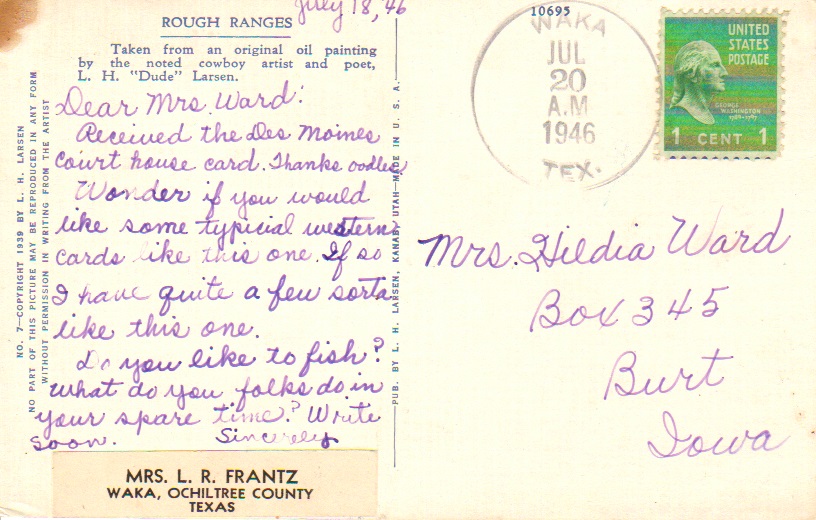 July 18, '46
ROUGH RANGES
Taken from an original oil painting
by the noted cowboy artist and poet,
L. H. "Dude" Larsen.
Dear Mrs. Ward:
Received the Des Moines
Court house card. Thanks oodles
Wonder if you would
like some typicial western
cards like this one. If so
I have quite a few sorta
like this one.
Do you like to fish?
What do you folks do in
your spare time? Write
soon. Sincerely
MRS. L. R. FRANTZ
WAKA, OCHILTREE COUNTY
TEXAS
NO. 7—COPYRIGHT 1939 BY L. H. LARSEN
NO PART OF THIS PICTURE MAY BE REPRODUCED IN ANY FORM
WITHOUT PERMISSION IN WRITING FROM THE ARTIST
PUB. BY L. H. LARSEN, KANAB, UTAH—MADE IN U. S. A.
10695
WAKA
JUL
20
A.M
1946
TEX.
UNITED
STATES
POSTAGE
GEORGE
WASHINGTON
1789-1797
1 CENT 1
Mrs. Hildia Ward
Box 345
Burt
Iowa